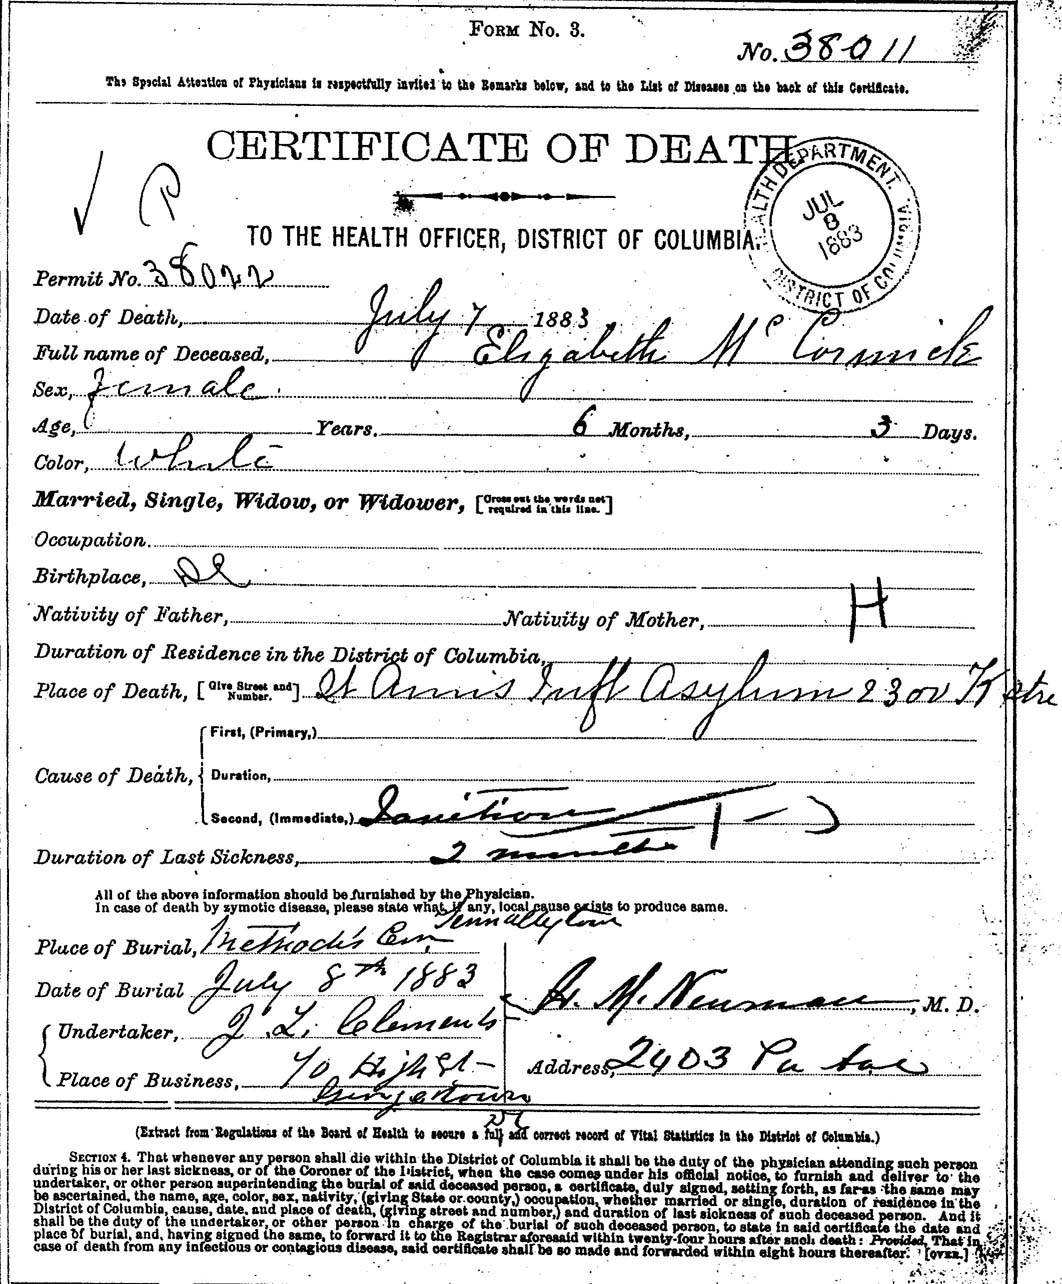 FORM NO. 3.
No. 38011
The Special Attention of Physicians is respectfully invited to the Remarks below, and to the List of Diseases on the back of this Certificate.
CERTIFICATE OF DEATH.
HEALTH DEPARTMENT.
JUL
8
1883
DISTRICT OF COLUMBIA
TO THE HEALTH OFFICER, DISTRICT OF COLUMBIA.
Permit No. 38022
Date of Death, July 7 1883
Full name of Deceased, Elizabeth Mc Cormick
Sex, Female
Age, Years. 6 Months, 3 Days.
Color, White
Married, Single, Widow, or Widower, [Cross out the words not required in this line.]
Occupation.
Birthplace, DC
Nativity of Father, Nativity of Mother, H
Duration of Residence in the District of Columbia,
Place of Death, [Give Street and Number.] St Anns Inft Asylum 2300 K stre
Cause of Death,
First, (Primary,)
Duration,
Second, (Immediate,) Inanition
Duration of Last Sickness, 2 months
All of the above information should be furnished by the Physician.
In case of death by zymotic disease, please state what, if any, local cause exists to produce same.
Tennallytown
Place of Burial, Methodis Cem
Date of Burial July 8th 1883
H. M. Newman, M. D.
Undertaker, J. L. Clements
Address, 2403 Pa Ave
Place of Business, 70 High St
Georgetown
DC
(Extract from Regulations of the Board of Health to secure a full and correct record of Vital Statistics in the District of Columbia.)
SECTION 4. That whenever any person shall die within the District of Columbia it shall be the duty of the physician attending such person
during his or her last sickness, or of the Coroner of the District, when the case comes under his official notice, to furnish and deliver to the
undertaker, or other person superintending the burial of said deceased person, a certificate, duly signed, setting forth, as far as the same may
be ascertained, the name, age, color, sex, nativity, (giving State or county,) occupation, whether married or single, duration of residence in the
District of Columbia, cause, date, and place of death, (giving street and number,) and duration of last sickness of such deceased person. And it
shall be the duty of the undertaker, or other person in charge of the burial of such deceased person, to state in said certificate the date and
place of burial, and, having signed the same, to forward it to the Registrar aforesaid within twenty-four hours after such death: Provided, That in
case of death from any infectious or contagious disease, said certificate shall be so made and forwarded within eight hours thereafter. [OVER.]